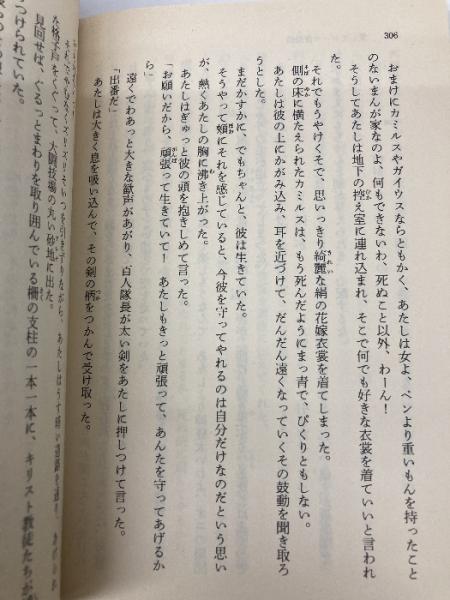 306
おまけにカミルスやガイウスならともかく、あたしは女よ、ペンより重いもんを持ったこと
のないまんが家なのよ、何もできないわ、死ぬこと以外、わーん!
そうしてあたしは地下の控え室に連れ込まれ、そこで何でも好きな衣裳を着ていいと言われ
た。
それでもうやけくそで、思いっきり綺麗な絹の花嫁衣裳を着てしまった。
側の床に横たえられたカミルスは、もう死んだようにまっ青で、ぴくりともしない。
あたしは彼の上にかがみ込み、耳を近づけて、だんだん遠くなっていくその鼓動を聞き取ろ
うとした。
まだかすかに、でもちゃんと、彼は生きていた。
そうやって頰にそれを感じていると、今彼を守ってやれるのは自分だけなのだという思い
が、熱くあたしの胸に沸き上がった。
あたしはぎゅっと彼の頭を抱きしめて言った。
「お願いだから、頑張って生きていて! あたしもきっと頑張って、あんたを守ってあげるか
ら」
遠くでわあっと大きな歓声があがり、百人隊長が太い剣をあたしに押しつけて言った。
「出番だ」
あたしは大きく息を吸い込んで、その剣の柄をつかんで受け取った。
ズリズリそいつを引きずりながら、あたしはうす暗い通路を通り、
た格子戸をくぐって、大闘技場の丸い砂地に出た。
見回せば、ぐるっとまわりを取り囲んでいる柵の支柱の一本一本に、キリスト教徒たちが
つけられていた。